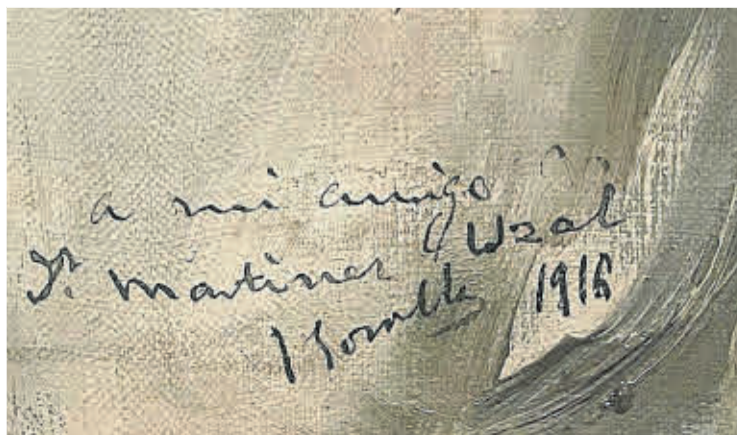 a mi amigo
Sr. Martinez Uzal
J Sorolla 1916